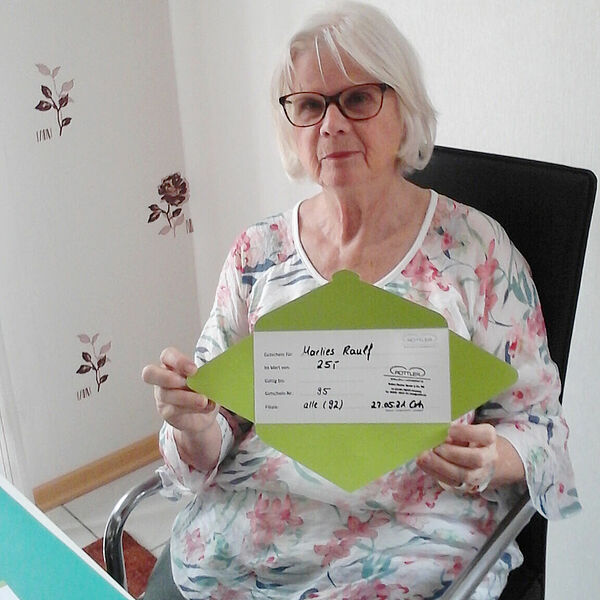 ROTTLER
Gutschein für: Marlies Raulf
Im Wert von: 25,-
Gültig bis:
ROTTLER
Gutschein Nr.: 95
Filiale: alle (92) 27.05.21